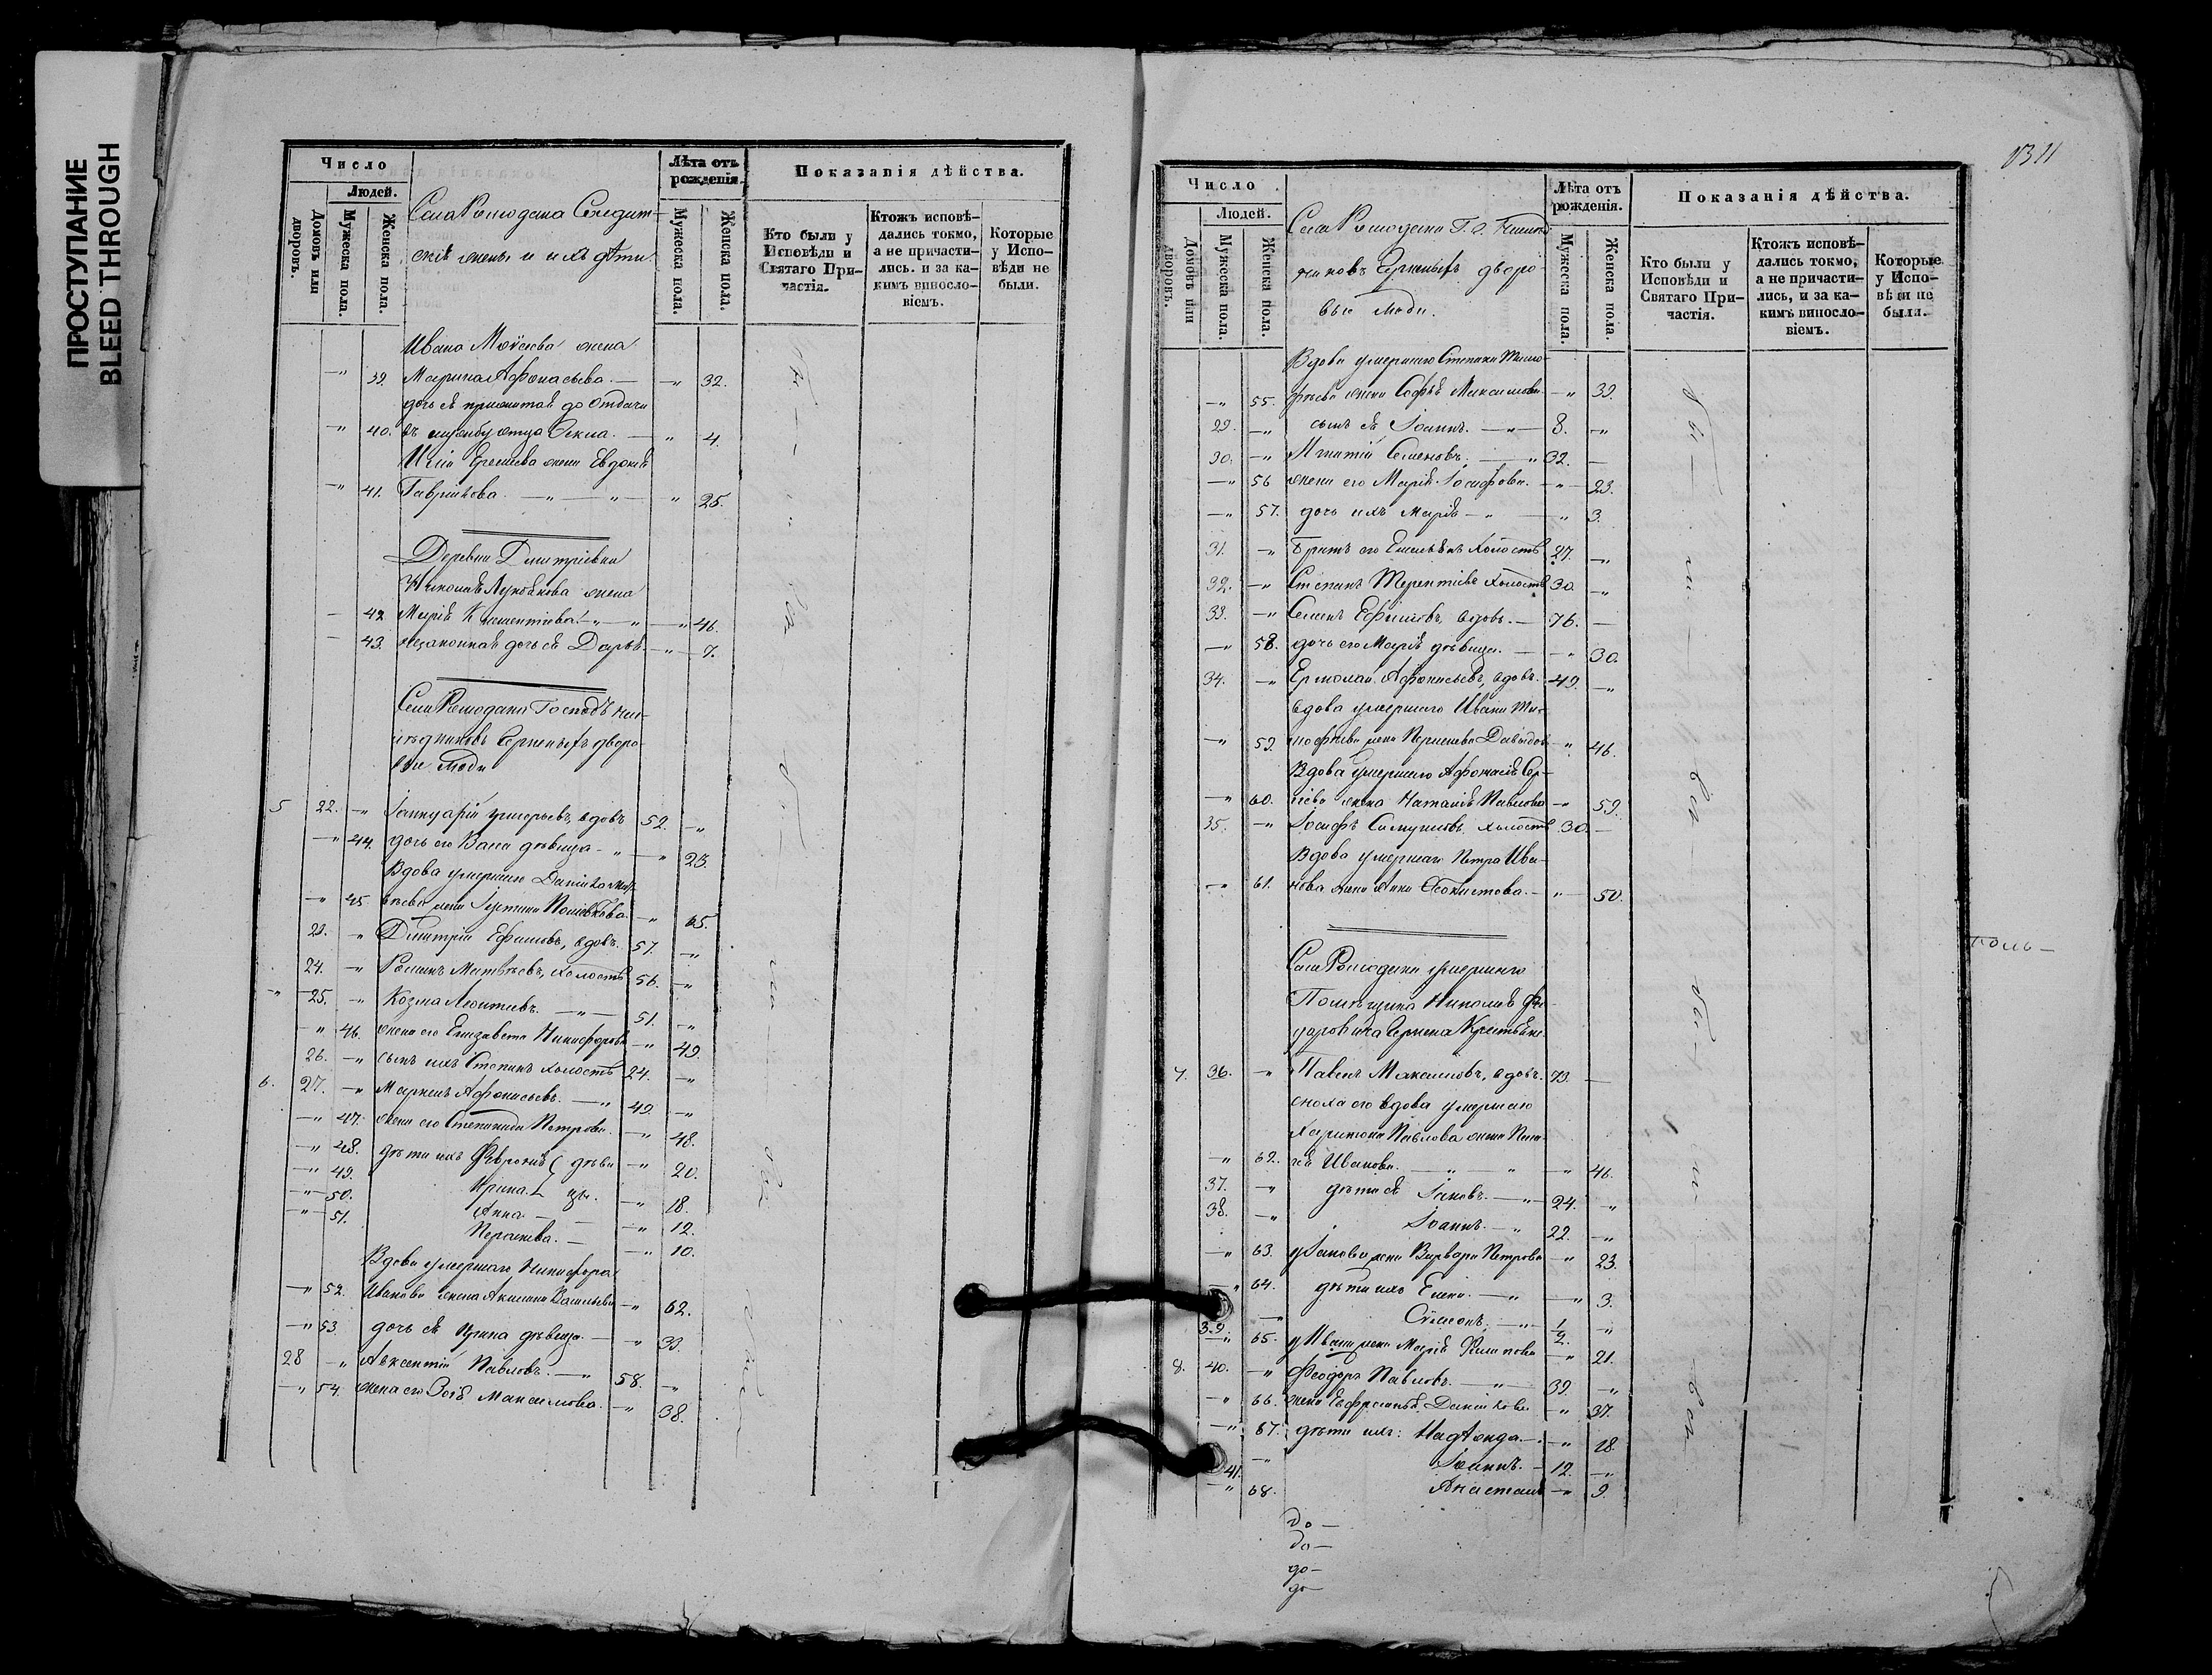 ПРОСТУПАНИЕ
BLEED THROUGH
Число
Людей.
Домовъ или дворовъ.
Мужеска пола.
Женска пола.
Села Ромодана Солдат-
скіе жены и ихъ дѣти.
Лѣта отъ рожденія.
Мужеска пола.
Женска пола.
Показанія дѣйства.
Кто были у Исповѣди и Святаго Причастія.
Ктожъ исповѣдались токмо, а не причастились. и за какимъ винословіемъ.
Которые у Исповѣди не были.
Ивана Моѵсеева жена
-" 39. Марина Афонасьева. — -" 32.
дочь ея прижитая до отдачи
-" 40. въ службу отца Ѳекла. — " 4.
Иліи Еремѣева жена Евдокія
-" 41. Гавриилова. -"- -"- " 25.
Деревни Дмитріевки
жена
- 42 Марія Климентіева. -"- -"- -" 46.
- 43. незаконная дочь ея Дарья. -" 7.
Села Ромодана Господъ нас-
лѣдниковъ дворо-
вые люди
5 22. -" Іаннуарій Григорьевъ, вдовъ 52. -"
-" 44. дочь его Васса дѣвица - " - " 23.
Вдова умершаго Даніила Мат-
-" 45. вѣева жена -" 65.
23. -" Дмитрій Ефимовъ, вдовъ. 57. -"
24. -" Романъ Матвѣевъ, холостъ 56. -"
-" 25. -" Козма Леонтіевъ. -"- 51. -"
-" 46. жена его Елизавета Никифорова -" 49.
26. -" сынъ ихъ Степанъ холостъ 24. -"
6. 27. -" Маркелъ Афонасьевъ. -" 49. -"
-" 47. жена его Степанида Петрова. -" 48.
-" 48. дѣти ихъ Феѵронія ( дѣви -" 20.
-" 49. Ирина. цы. -" 18.
-" 50. Анна. — -" 12.
-" 51. Пелагея. — -" 10.
Вдова умершаго Никифора
-" 52. Иванова жена Акилина Васильева -" 62.
-" 53. дочь ея Ирина дѣвица. -" 33.
28 -" Авксентій Павловъ. -" 58. -"
-" 54. жена его Зоя Максимова. -" 38.
1311
Число
Людей.
Домовъ или дворовъ.
Мужеска пола.
Женска пола.
Села Ромодана Г. д.
дворо-
вые люди.
Лѣта отъ рожденія.
Мужеска пола.
Женска пола.
Показанія дѣйства.
Кто были у Исповѣди и Святаго Причастія.
Ктожъ исповѣдались токмо, а не причастились, и за какимъ винословіемъ.
Которые у Исповѣди не были.
Вдова умершаго Степана Тимо-
-" 55. фѣева жена Софья Максимова. -" 39.
29. -" сынъ ея Іоаннъ. -"- 8. -"
30. -" Игнатій Семеновъ. -" 32. —
-" 56 жена его Марія Іосифова. -" 23.
-" 57. дочь ихъ Марія -" -" 3.
31. -" Братъ его Емельянъ холостъ 27. -"
32. -" Степанъ Терентіевъ холостъ 30. -"
33. -" Семенъ Ефимовъ, вдовъ. — 76. —
-" 58. дочь его Марія дѣвица. — -" 30.
34. -" Ермолай Афонасьевъ, вдовъ. 49. -"
вдова умершаго Ивана Ти-
-" 59. мофѣева жена Пелагея Давыдова -" 46.
Вдова умершаго Афонасія Сер-
-" 60. гіева жена Наталія Павлова -" 59.
35. -" Іосифъ Самуиловъ, холостъ 30. —
Вдова умершаго Петра Ива-
-" 61. нова жена Анна Ѳеоктистова. -" 50.
поль —
Села Ромодана умершаго
Помѣщика Николая Фео-
доровича Крестьяне.
7. 36. -" Павелъ Максимовъ, вдовъ. 73. —
сноха его вдова умершаго
Харитона Павлова жена
-" 62. Иванова. — " — " -" 46.
37. -" дѣти ея Іаковъ. -" 24. -"
38. -" Іоаннъ. -" 22. -"
-" 63. у Іакова жена Варвара Петрова -" 23.
-" 64. дѣти ихъ Елена. -" -" 3.
39 -" Сѵмеонъ. -" 1/2. "
-" 65. у Ивана жена Марія Филипова -" 21.
8. 40. -" Ѳеодоръ Павловъ. -" 39. -"
-" 66. жена Евфросинья Даніилова. -" 37.
-" 67. дѣти ихъ: Надѣжда. -" 18.
41. -" Іоаннъ. - 12. -"
-" 68. Анастасія -" 9.
до —
до —
до —
до —